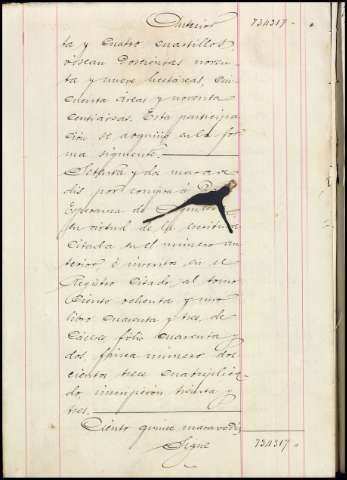 Anterior 734317
ta y cuatro cuartillos,
ó sean Doscientas noven-
ta y nueve hectáreas, Cin-
cuenta áreas y noventa
centiáreas. Esta participa-
ción se adquirió en la for-
ma siguiente.
Setenta y dos marave-
dís por compra á
Esperanza de
en virtud de la escritura
Citada en el número an-
terior é inscrita en el
Registro Citado, al tomo
Ciento ochenta y uno
libro Cuarenta y tres, de
Cáceres folio Cuarenta y
dos, finca número dos-
cientos trece cuadruplica-
do, inscripción treinta y
tres.
Ciento quince maravedís
Sigue 734317